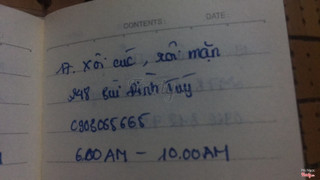 CONTENTS: DATE:
17. Xôi cúc, xôi mặn
248 Bùi Đình Tuý
0906065665
6.00 AM – 10.00 AM